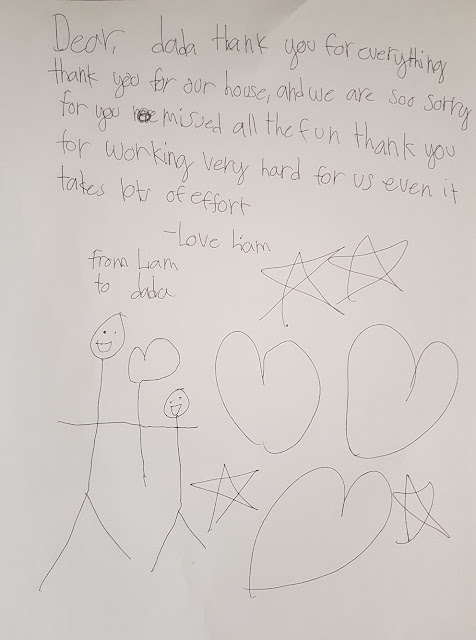 Dear, dada thank you for everything
thank you for our house, and we are soo sorry
for you missed all the fun thank you
for working very hard for us even it
takes lots of effort
-Love Liam
from Liam
to dada